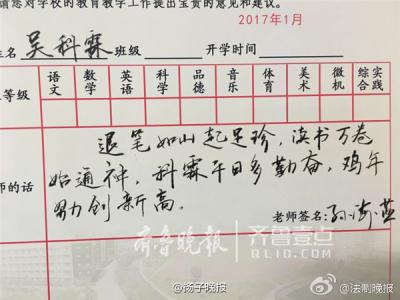 请您对学校的教育教学工作提出宝贵的意见和建议。
2017年1月
姓名 吴科霖 班级 开学时间
等级 语文 数学 英语 科学 品德 音乐 体育 美术 微机 综合实践
师的话
退笔如山起足珍，读书万卷
始通神，科霖平日多勤奋，鸡年
努力创新高。
老师签名：
齐鲁晚报 齐鲁壹点
QLID.COM
@扬子晚报 @法制晚报